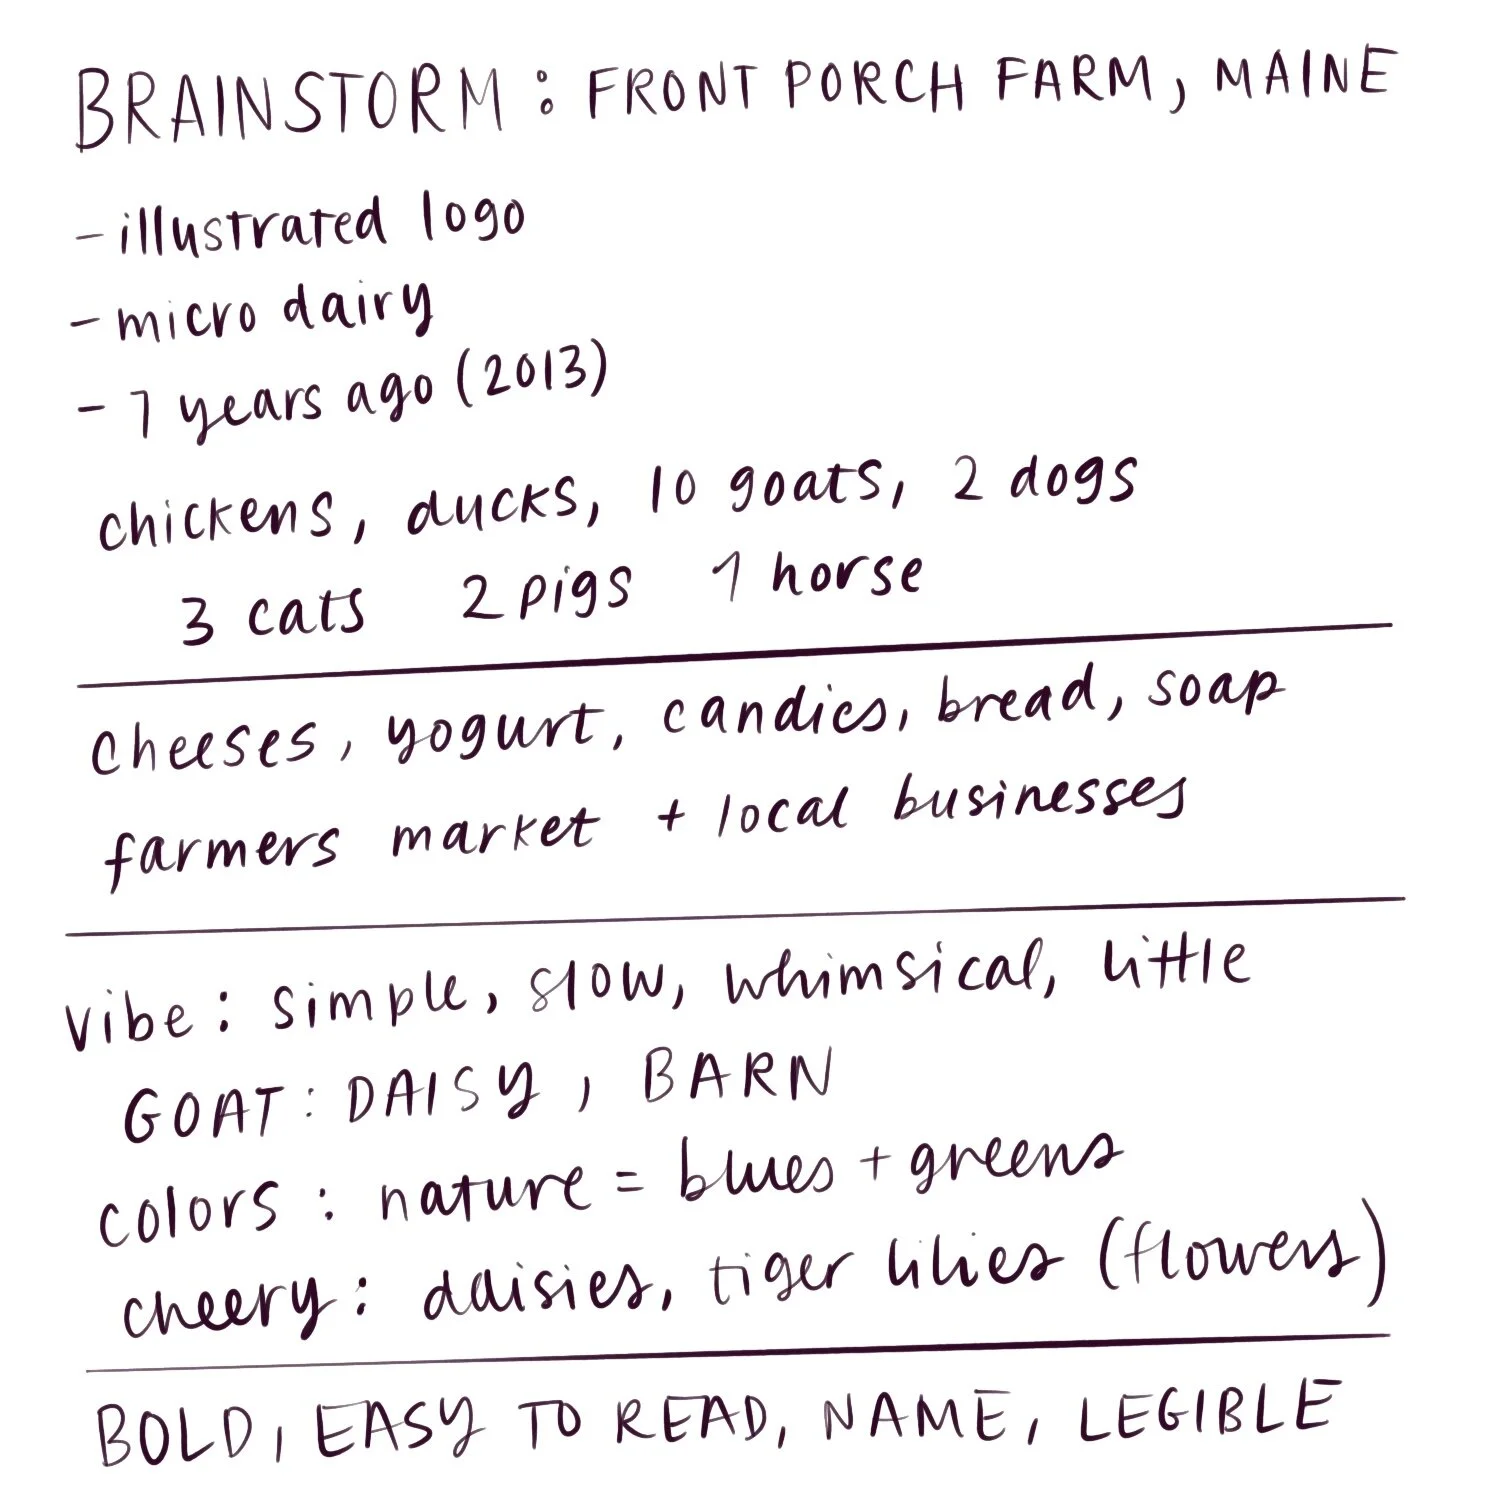 BRAINSTORM: FRONT PORCH FARM, MAINE
- illustrated logo
- micro dairy
- 7 years ago (2013)
chickens, ducks, 10 goats, 2 dogs
3 cats 2 pigs 1 horse
cheeses, yogurt, candies, bread, soap
farmers market + local businesses
vibe: simple, slow, whimsical, little
GOAT: DAISY, BARN
colors: nature = blues + greens
cheery: daisies, tiger lilies (flowers)
BOLD, EASY TO READ, NAME, LEGIBLE